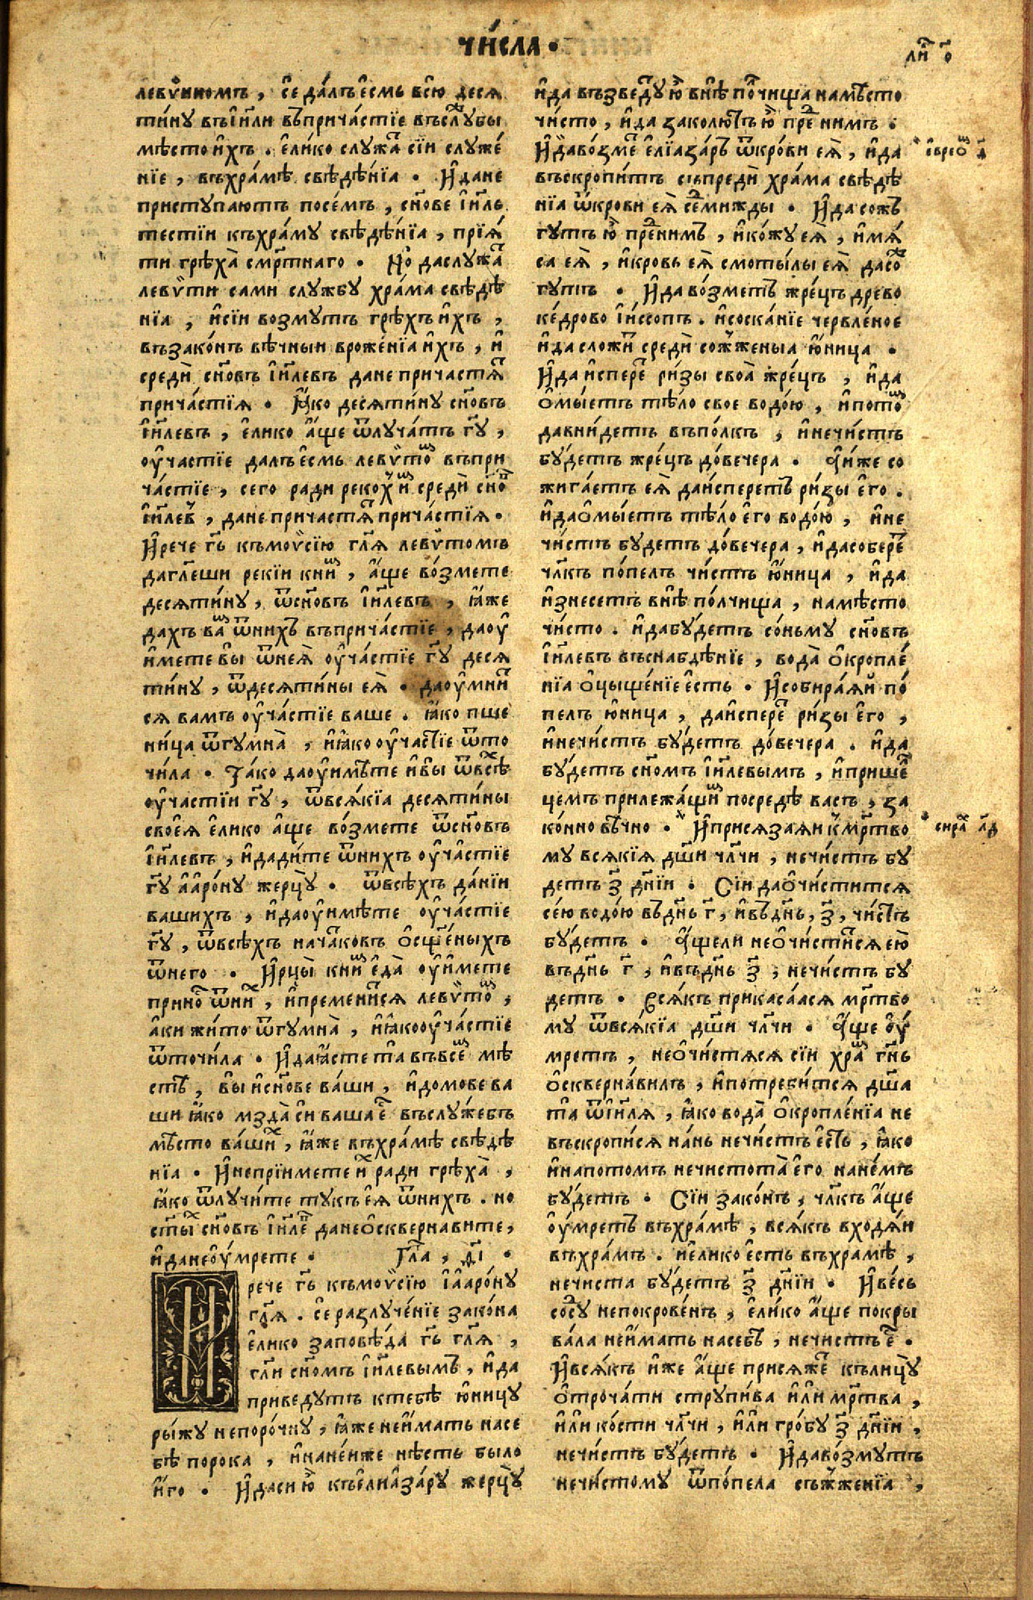 чи́сла.
ли̑ о҃
леви́иномъ, се да́лъ є҆́смь всю̀ деся
ти́ну въ і҆и҃ли въпричѧ́стїе въслꙋ́бы
мѣ́сто и҆́хъ. є҆ли́ко слꙋ́жа сїи слꙋже́
нїе, въхра́мѣ свѣдѣ́нїа. И҆ дане
пристꙋпаютъ посе́мъ, сн҃ове і҆и҃ль
тестїи къхра́мꙋ свѣдѣ́нїа, прїѧ́
ти грѣха̀ смр҃тнаго. Но̀ даслꙋ́жа
леви́ти сами слꙋ́жбꙋ хра́ма свѣдѣ́
нїа, и҆сїи возмꙋтъ грѣхъ и҆́хъ,
въ зако́нъ вѣ́чныи врожⷣе́нїа и҆́хъ, и҆
средѝ сн҃овъ і҆и҃левъ дане причастѧ́т
прича́стїѧ. Ꙗ҆́ко десѧти́нꙋ сн҃овъ
і҆и҃левъ, є҆ли́ко а҆́ще ѿлꙋча́тъ гꙋ҃,
ᲂу҆ча́стїе далъ є҆́смь леви́тоⷨ въпри
ча́стїе, сего ради реко́х и҆́мъ средѝ сн҃о
і҆и҃леⷡ, дане причастѧ́т прича́стїѧ.
И҆рече гь҃ къмоѷсїю гл҃ѧ леви́томъ
даглеши рекїи книⷨ, а҆́ще во́змете
десѧти́нꙋ, ѿсн҃овъ і҆и҃левъ, ꙗ҆́же
дахъ ваⷨ ѿних въприча́стїе, даᲂу҆
и҆мете вы̀ ѿнеѧ̀ ᲂу҆ча́стїе гꙋ҃ десѧ
ти́нꙋ, ѿдесѧти́ны еѧ̀. даᲂу҆мниⷮ
сѧ вамъ ᲂу҆ча́стїе ваше. ꙗ҆́ко пше
ница ѿгꙋмна̀, и҆ꙗ҆́ко ᲂу҆ча́стїе ѿто
чи́ла. Та́ко даᲂу҆имѣ́те и҆вы̀ ѿвсѣⷯ
ᲂу҆ча́стїи гꙋ҃, ѿвсѧ́кїа десѧти́ны
своеѧ̀ є҆ли́ко а҆́ще во́змете ѿсн҃овъ
і҆и҃левъ, и҆дади́те ѿнихъ ᲂу҆ча́стїе
гꙋ҃ а҆аро́нꙋ жерцꙋ̀. ѿвсѣ́хъ да́нїи
вашихъ, и҆даᲂу҆имѣ́те ᲂу҆ча́стїе
гꙋ҃, ѿвсѣ́хъ начаⷮковъ ѻ҆сще́ныхъ
ѿнего. И҆рцы̀ книⷨ є҆да̀ ᲂу҆и́мете
приноⷭ ѿниⷯ, и҆пременитсѧ леви́тоⷨ,
а҆ки жито ѿгꙋмна̀, и҆ꙗ҆́коᲂу҆ча́стїе
ѿточи́ла. И҆даꙗ҆́сте та̀ въвсеⷨ мѣ́
стѣ, вы̀ и҆сн҃ове ва́ши, и҆домове ва
ши ꙗ҆́ко мзда̀ си ваша є҆ⷭ въслꙋ́жебъ
мѣ́сто ва́шиⷯ, ꙗ҆́же въхра́мѣ свѣдѣ́
нїа. И҆ непрїимете и҆ⷯ ради грѣха̀,
ꙗ҆́ко ѿлꙋчи́те тꙋкъ еѧ ѿнихъ. но
ст҃ыⷯ сн҃овъ і҆и҃леⷡ данеѻ҆скверна́вите,
и҆ данеᲂу҆́мрете. Гла, ѳ҃і.
И рече гь҃ къмоѷсїю і҆ а҆аро́нꙋ
гл҃ѧ. се разлꙋче́нїе зако́на
є҆ли́ко заповѣ́да гь҃ гл҃ѧ,
гл҃и сн҃омъ і҆и҃левымъ, и҆да
приведꙋтъ ктебѣ̀ ю҆́ницꙋ
ры́жꙋ непоро́чнꙋ, ꙗ҆́же неи҆́мать насе
бѣ̀ порока, и҆нане́иже нѣ́сть было
и҆́го. И҆даси ю҆̀ къелиа҆за́рꙋ жерцꙋ̀
и҆да възведꙋⷮ ю҆̀ внѣ̀ поⷧчища намѣ́сто
чи́сто, и҆да заколютъ ю҆̀ преⷣ нимъ.
И҆даво́змеⷮ є҆лїаза́ръ ѿкро́ви еѧ̀, и҆да
въскропи́тъ сьпредѝ хра́ма свѣдѣ́
нїа ѿкрови еѧ̀ сеⷣмижды. И҆да сожъ
гꙋтъ ю҆̀ преⷣнимъ, и҆ко́жꙋ еѧ̀, и҆мѧ́
са еѧ̀, и҆кровь еѧ̀ смотылы еѧ̀ дасоⷤ
гꙋтъ. И҆да во́зметъ жре́цъ древо
ке́дрово і҆иссопъ. и҆соска́нїе червле́ное
и҆да сложи́ⷮ средѝ сожⷤженыа ю҆́ница.
И҆да и҆спереⷮ ри́зы своа̀ жре́цъ, и҆да
ѻ҆мы́етъ тѣ́ло свое водо́ю, и҆потоⷨ
давни́детъ въпо́лкъ, и҆нечи́стъ
бꙋ́детъ жре́цъ до́вечера. Ꙗ҆и́же со
жига́етъ еѧ̀ даи҆сперетъ ри́зы є҆го.
и҆даѻ҆мы́етъ тѣ́ло є҆го водо́ю, и҆не
чи́стъ бꙋ́детъ до́вечера, и҆дасобереⷮ
чл҃къ по́пелъ чи́стъ ю҆́ница, и҆да
и҆знесетъ внѣ̀ по́лчища, намѣ́сто
чи́сто. и҆дабꙋ́детъ со́ньмꙋ сн҃овъ
і҆и҃левъ въснабдѣ́нїе, вода̀ ѻ҆кропле́
нїа ѻ҆цыще́нїе є҆́сть. И҆собираѧ́й по́
пелъ ю҆́ница, даи҆спереⷮ ри́зы є҆го,
и҆нечи́стъ бꙋ́детъ до́вечера. и҆да
бꙋ́детъ сн҃омъ і҆и҃левымъ, и҆прише́ⷧ
цемъ прилежа́щиⷨ посредѣ̀ васъ, за
ко́нно вѣ́чно. И҆присѧза́ѧи кмр҃тво
мꙋ всѧ́кїѧ дш҃и чл҃чи, нечи́стъ бꙋ́
детъ з҃ дн҃їи. Сїи даѻ҆чи́ститсѧ
се́ю водо́ю въдн҃ь г҃, и҆въдн҃ь, з҃, чи́стъ
бꙋ́детъ. А҆́щели неѻ҆чи́ститсѧ е́ю
въдн҃ь г҃, и҆въдн҃ь з҃, нечи́стъ бꙋ́
детъ. Всѧ́къ прикаса́асѧ мр҃тво
мꙋ ѿвсѧ́кїа дш҃и чл҃чи. А҆́ще ᲂу҆́
мретъ, неѻ҆чи́стѧсѧ сїи храⷨ гн҃ь
ѻ҆скверна́вилъ, и҆потреби́тсѧ дш҃а
та̀ ѿі҆и҃лѧ, ꙗ҆́ко вода̀ ѻ҆кропле́нїа не
въскропи́сѧ на́нь нечи́стъ є҆́сть, ꙗ҆́ко
и҆напотомъ нечистота̀ є҆го нане́мъ
бꙋ́детъ. Сїи зако́нъ, чл҃къ а҆́ще
ᲂу҆́мретъ въхра́мѣ, всѧ́къ входѧ́и
въхра́мъ. и҆є҆ли́ко є҆́сть въхра́мѣ,
нечиста бꙋ́детъ з҃ дн҃їи. И҆ве́сь
сосꙋⷣ непокрове́нъ, є҆ли́ко а҆́ще покры
ва́ла неи҆́мать насебѣ̀, нечи́стъ є҆ⷭ.
И҆всѧ́къ и҆же а҆́ще присѧ́жеⷮ кълицꙋ̀
ѻ҆троча́ти стрꙋпи́ва и҆ли̑ мр҃тва,
и҆ли̑ ко́сти чл҃чи, и҆ли̑ гро́бꙋ з҃ дн҃їи,
нечи́стъ бꙋ́детъ. И҆даво́змꙋтъ
нечи́стомꙋ ѿпо́пела съжⷤже́нїа,
є҆вреоⷨ
сираⷯ лд҃